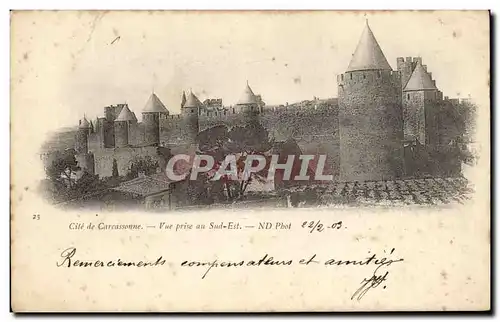 CPARAMA.COM
23
Cité de Carcassonne. — Vue prise au Sud-Est. — ND Phot 22/2 - 03.
Remerciements compensateurs et amitiés